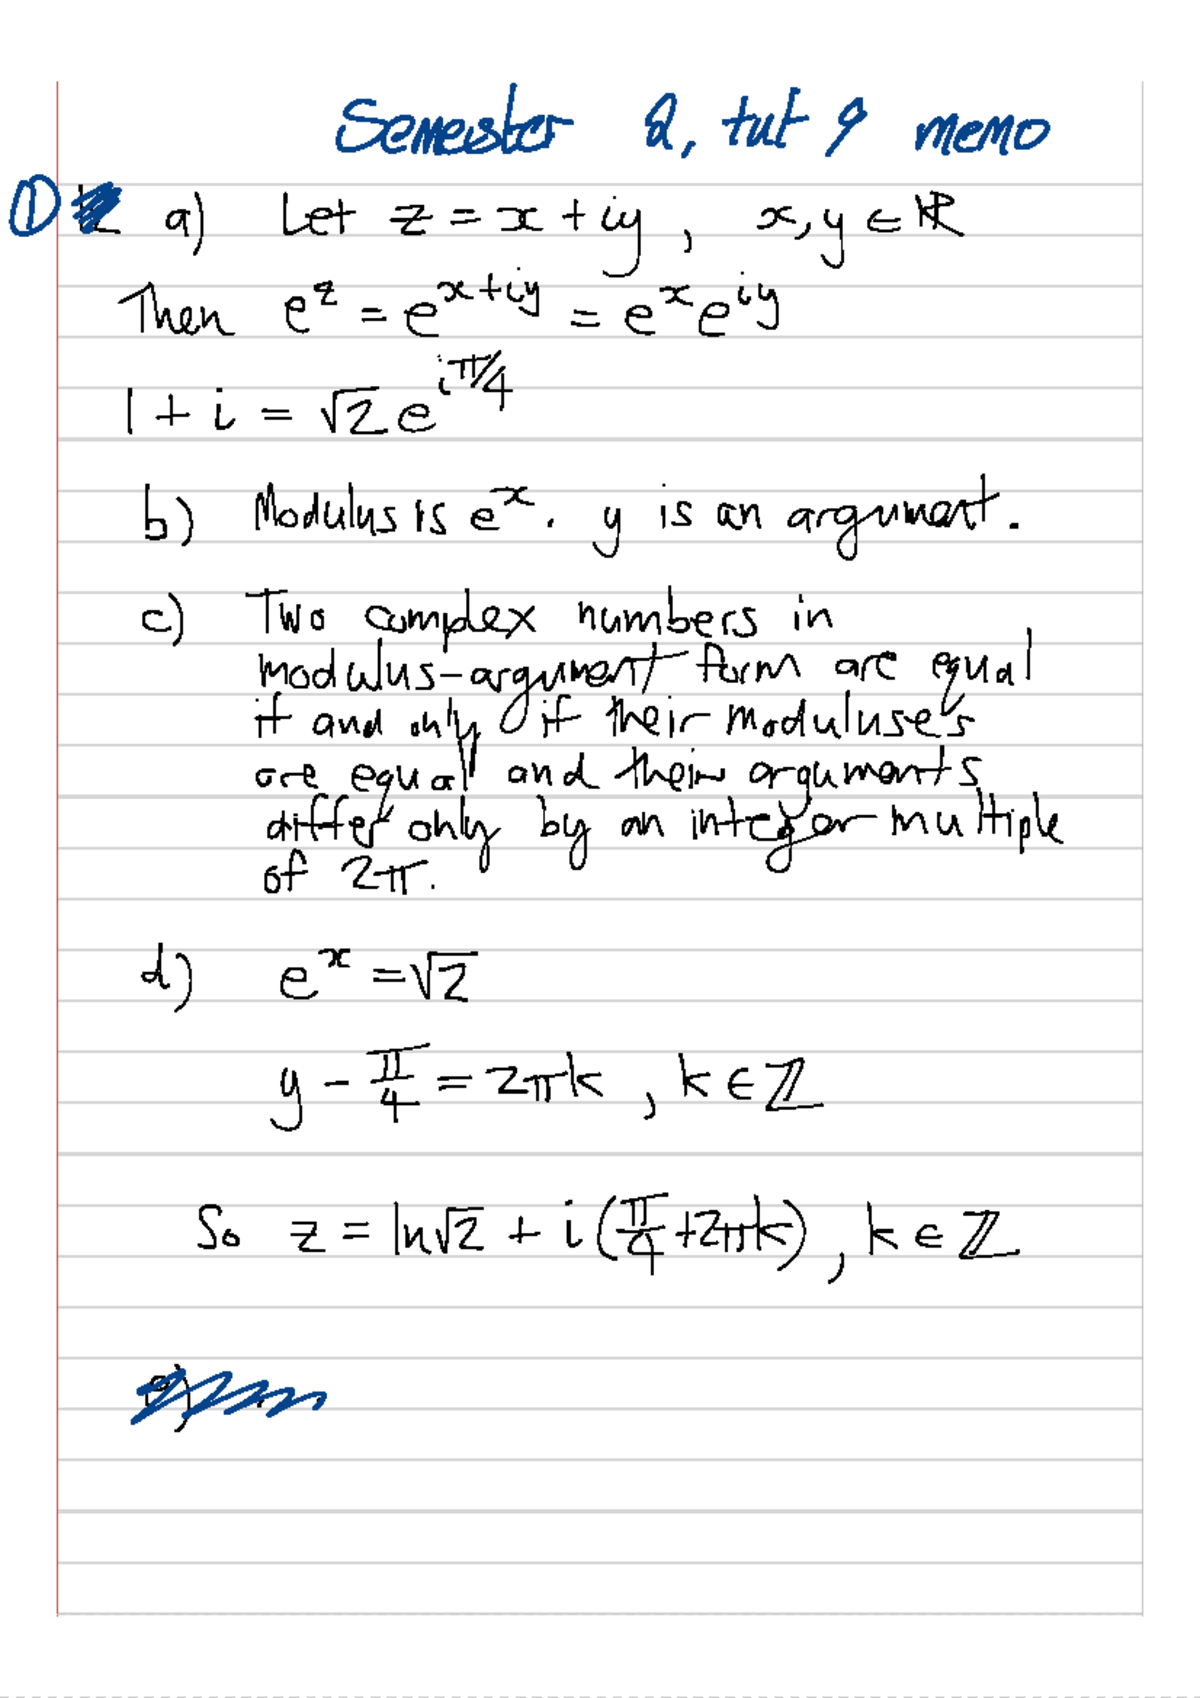 Semester 2, tut 9 memo
① a) Let z = x + iy , x, y ∈ ℝ
Then e^z = e^{x+iy} = e^x e^{iy}
1 + i = √2 e^{iπ/4}
b) Modulus is e^x. y is an argument.
c) Two complex numbers in
modulus-argument form are equal
if and only if their moduluses
are equal and their arguments
differ only by an integer multiple
of 2π.
d) e^x = √2
y - π/4 = 2πk , k ∈ ℤ
So z = ln√2 + i(π/4 + 2πk) , k ∈ ℤ